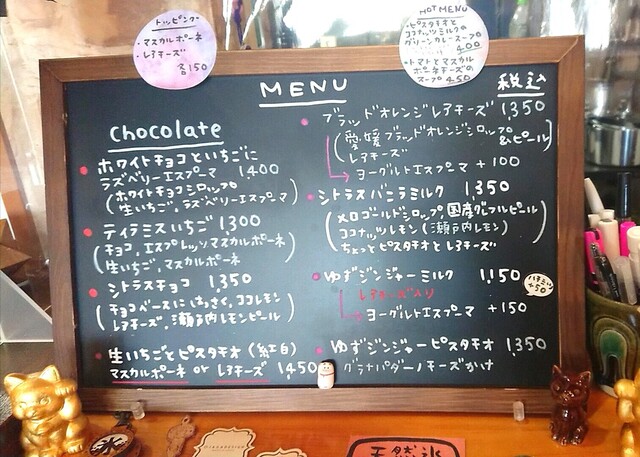 トッピング
・マスカルポーネ
・レアチーズ
各150
HOT MENU
・ピスタチオと
ココナッツミルクの
グリーンカレースープ
400
・トマトとマスカル
ポーネチーズの
スープ 450
MENU
税込
chocolate
ホワイトチョコといちごに
ラズベリーエスプーマ 1400
(ホワイトチョコシロップ
生いちご,ラズベリーエスプーマ)
ティラミスいちご 1,300
(チョコ,エスプレッソマスカルポーネ
生いちご,マスカルポーネ)
シトラスチョコ 1,350
(チョコベースにはっさく,ココレモン
レアチーズ,瀬戸内レモンピール)
生いちごとピスタチオ(紅白)
マスカルポーネ or レアチーズ 1,450
ブラッドオレンジレアチーズ 1,350
(愛媛ブラッドオレンジシロップ&ピール
レアチーズ)
ヨーグルトエスプーマ +100
シトラスバニラミルク 1,350
(メロゴールドシロップ,国産グレフルピール
ココナッツレモン(瀬戸内レモン)
ちょっとピスタチオとレアチーズ)
ゆずジンジャーミルク 1,150
ハチミツ
+50
レアチーズ入り
ヨーグルトエスプーマ +150
ゆずジンジャーピスタチオ 1,350
グラナパダーノチーズかけ
天然氷